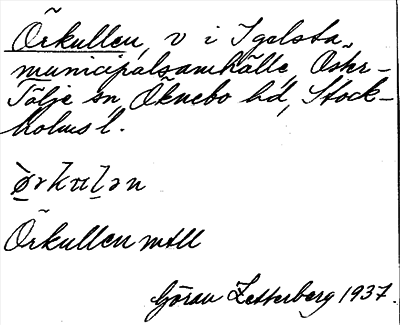 Örkullen, v i Igelsta
municipalsamhälle, Öster-
Tälje sn, Öknebo hd, Stock-
holms l.
Örkullen mtll
Göran Zetterberg 1937.